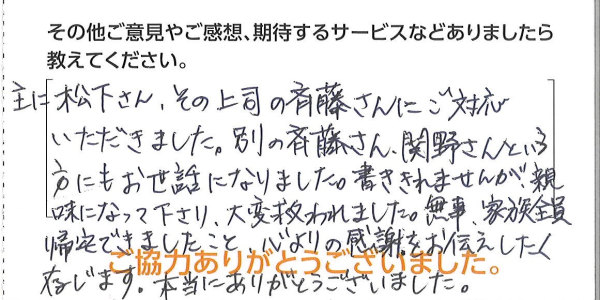 その他ご意見やご感想、期待するサービスなどありましたら
教えてください。
主に松下さん、その上司の斉藤さんにご対応
いただきました。別の斉藤さん、関野さんという
方にもお世話になりました。書ききれませんが、親
味になって下さり、大変救われました。無事、家族全員
帰宅できましたこと、心よりの感謝をお伝えしたく
存じます。本当にありがとうございました。
ご協力ありがとうございました。